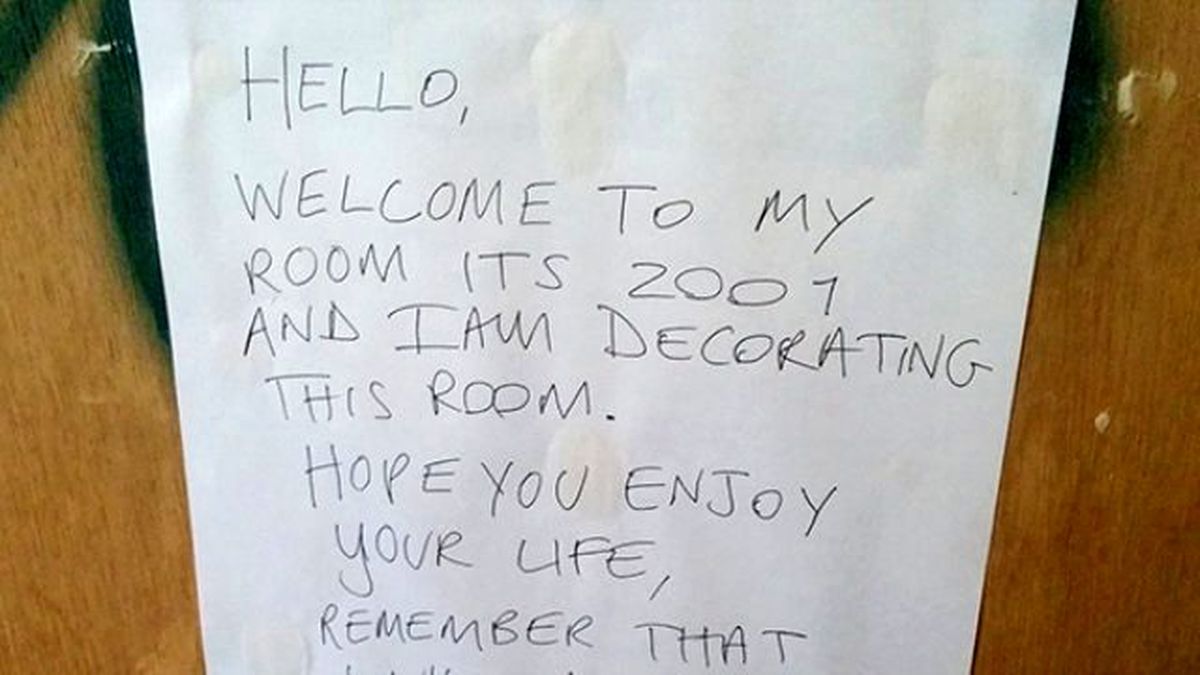 HELLO,
WELCOME TO MY
ROOM ITS 2001
AND I AM DECORATING
THIS ROOM.
HOPE YOU ENJOY
YOUR LIFE,
REMEMBER THAT